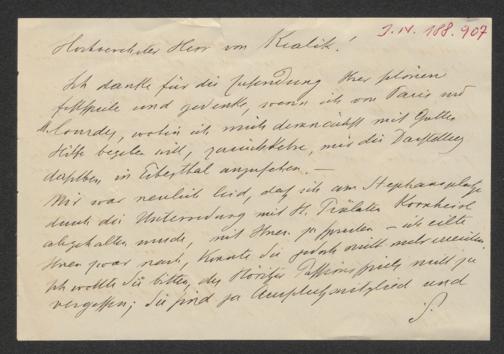 J.N. 188.907
Hochverehrter Herr von Kralik!
Ich danke für die Zusendung Ihrer schönen
Festspiele und gedenke, wenn ich von Paris und
Lourdes, wohin ich mich demnächst mit Gottes
Hilfe begeben will, zurückkehre, mir die Darstellung
derselben in Eibesthal anzusehen. —
Mir war neulich leid, daß ich am Stephansplatze
durch die Unterredung mit H. Prälaten Kornheisl
abgehalten wurde, mit Ihnen zu sprechen – ich eilte
Ihnen zwar nach, konnte Sie jedoch nicht mehr erreichen.
Ich wollte Sie bitten, des Höritzer Passionsspiels nicht zu
vergessen; Sie sind ja Ausschußmitglied und